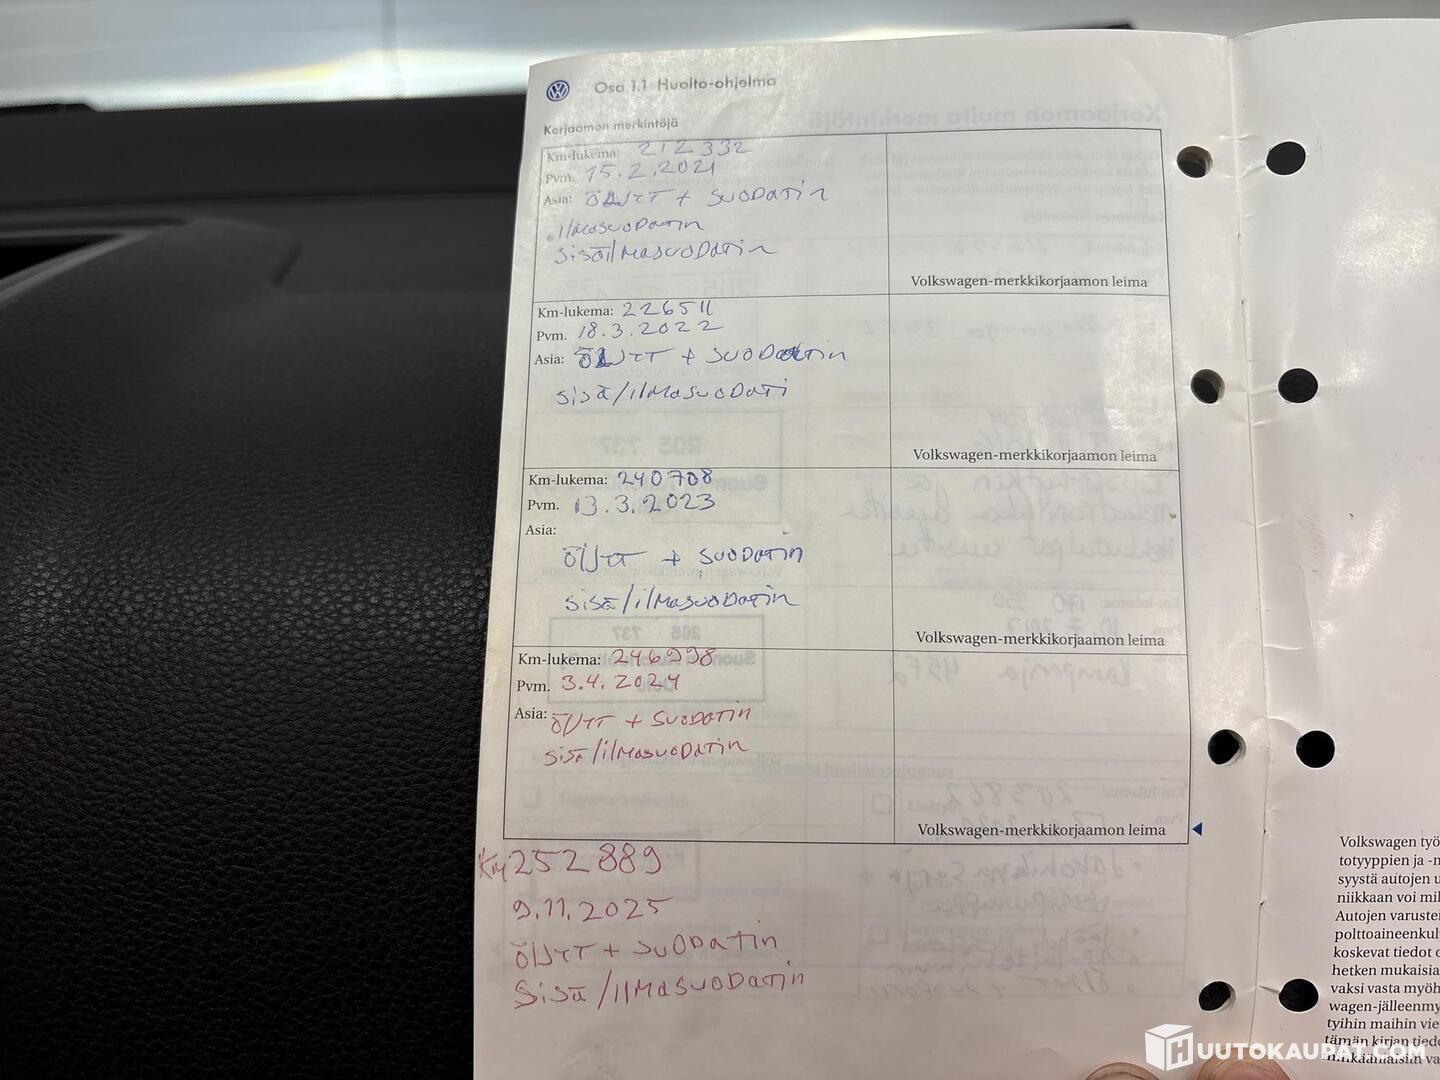 Osa 1.1 Huolto-ohjelma
Korjaamon merkintöjä
Km-lukema: 212332
Pvm. 15.2.2021
Asia: ÖLJYT + SUODATIN
ILMASUODATIN
SISÄILMASUODATIN
Volkswagen-merkkikorjaamon leima
Km-lukema: 226511
Pvm. 18.3.2022
Asia: ÖLJYT + SUODATIN
SISÄ/ILMASUODATI
Volkswagen-merkkikorjaamon leima
Km-lukema: 240708
Pvm. 13.3.2023
Asia:
ÖLJYT + SUODATIN
SISÄ/ILMASUODATIN
Volkswagen-merkkikorjaamon leima
Km-lukema: 246998
Pvm. 3.4.2024
Asia: ÖLJYT + SUODATIN
SISÄ/ILMASUODATIN
Volkswagen-merkkikorjaamon leima
KM 252889
9.11.2025
ÖLJYT + SUODATIN
SISÄ/ILMASUODATIN
Volkswagen työ
totyyppien ja -
syystä autojen
niikkaan voi
Autojen varustei
polttoaineenkul
koskevat tiedot
hetken mukaisia
vaksi vasta myöh
wagen-jälleenmy
tyihin maihin vie
tämän kirjan tiedo
HUUTOKAUPAT.COM